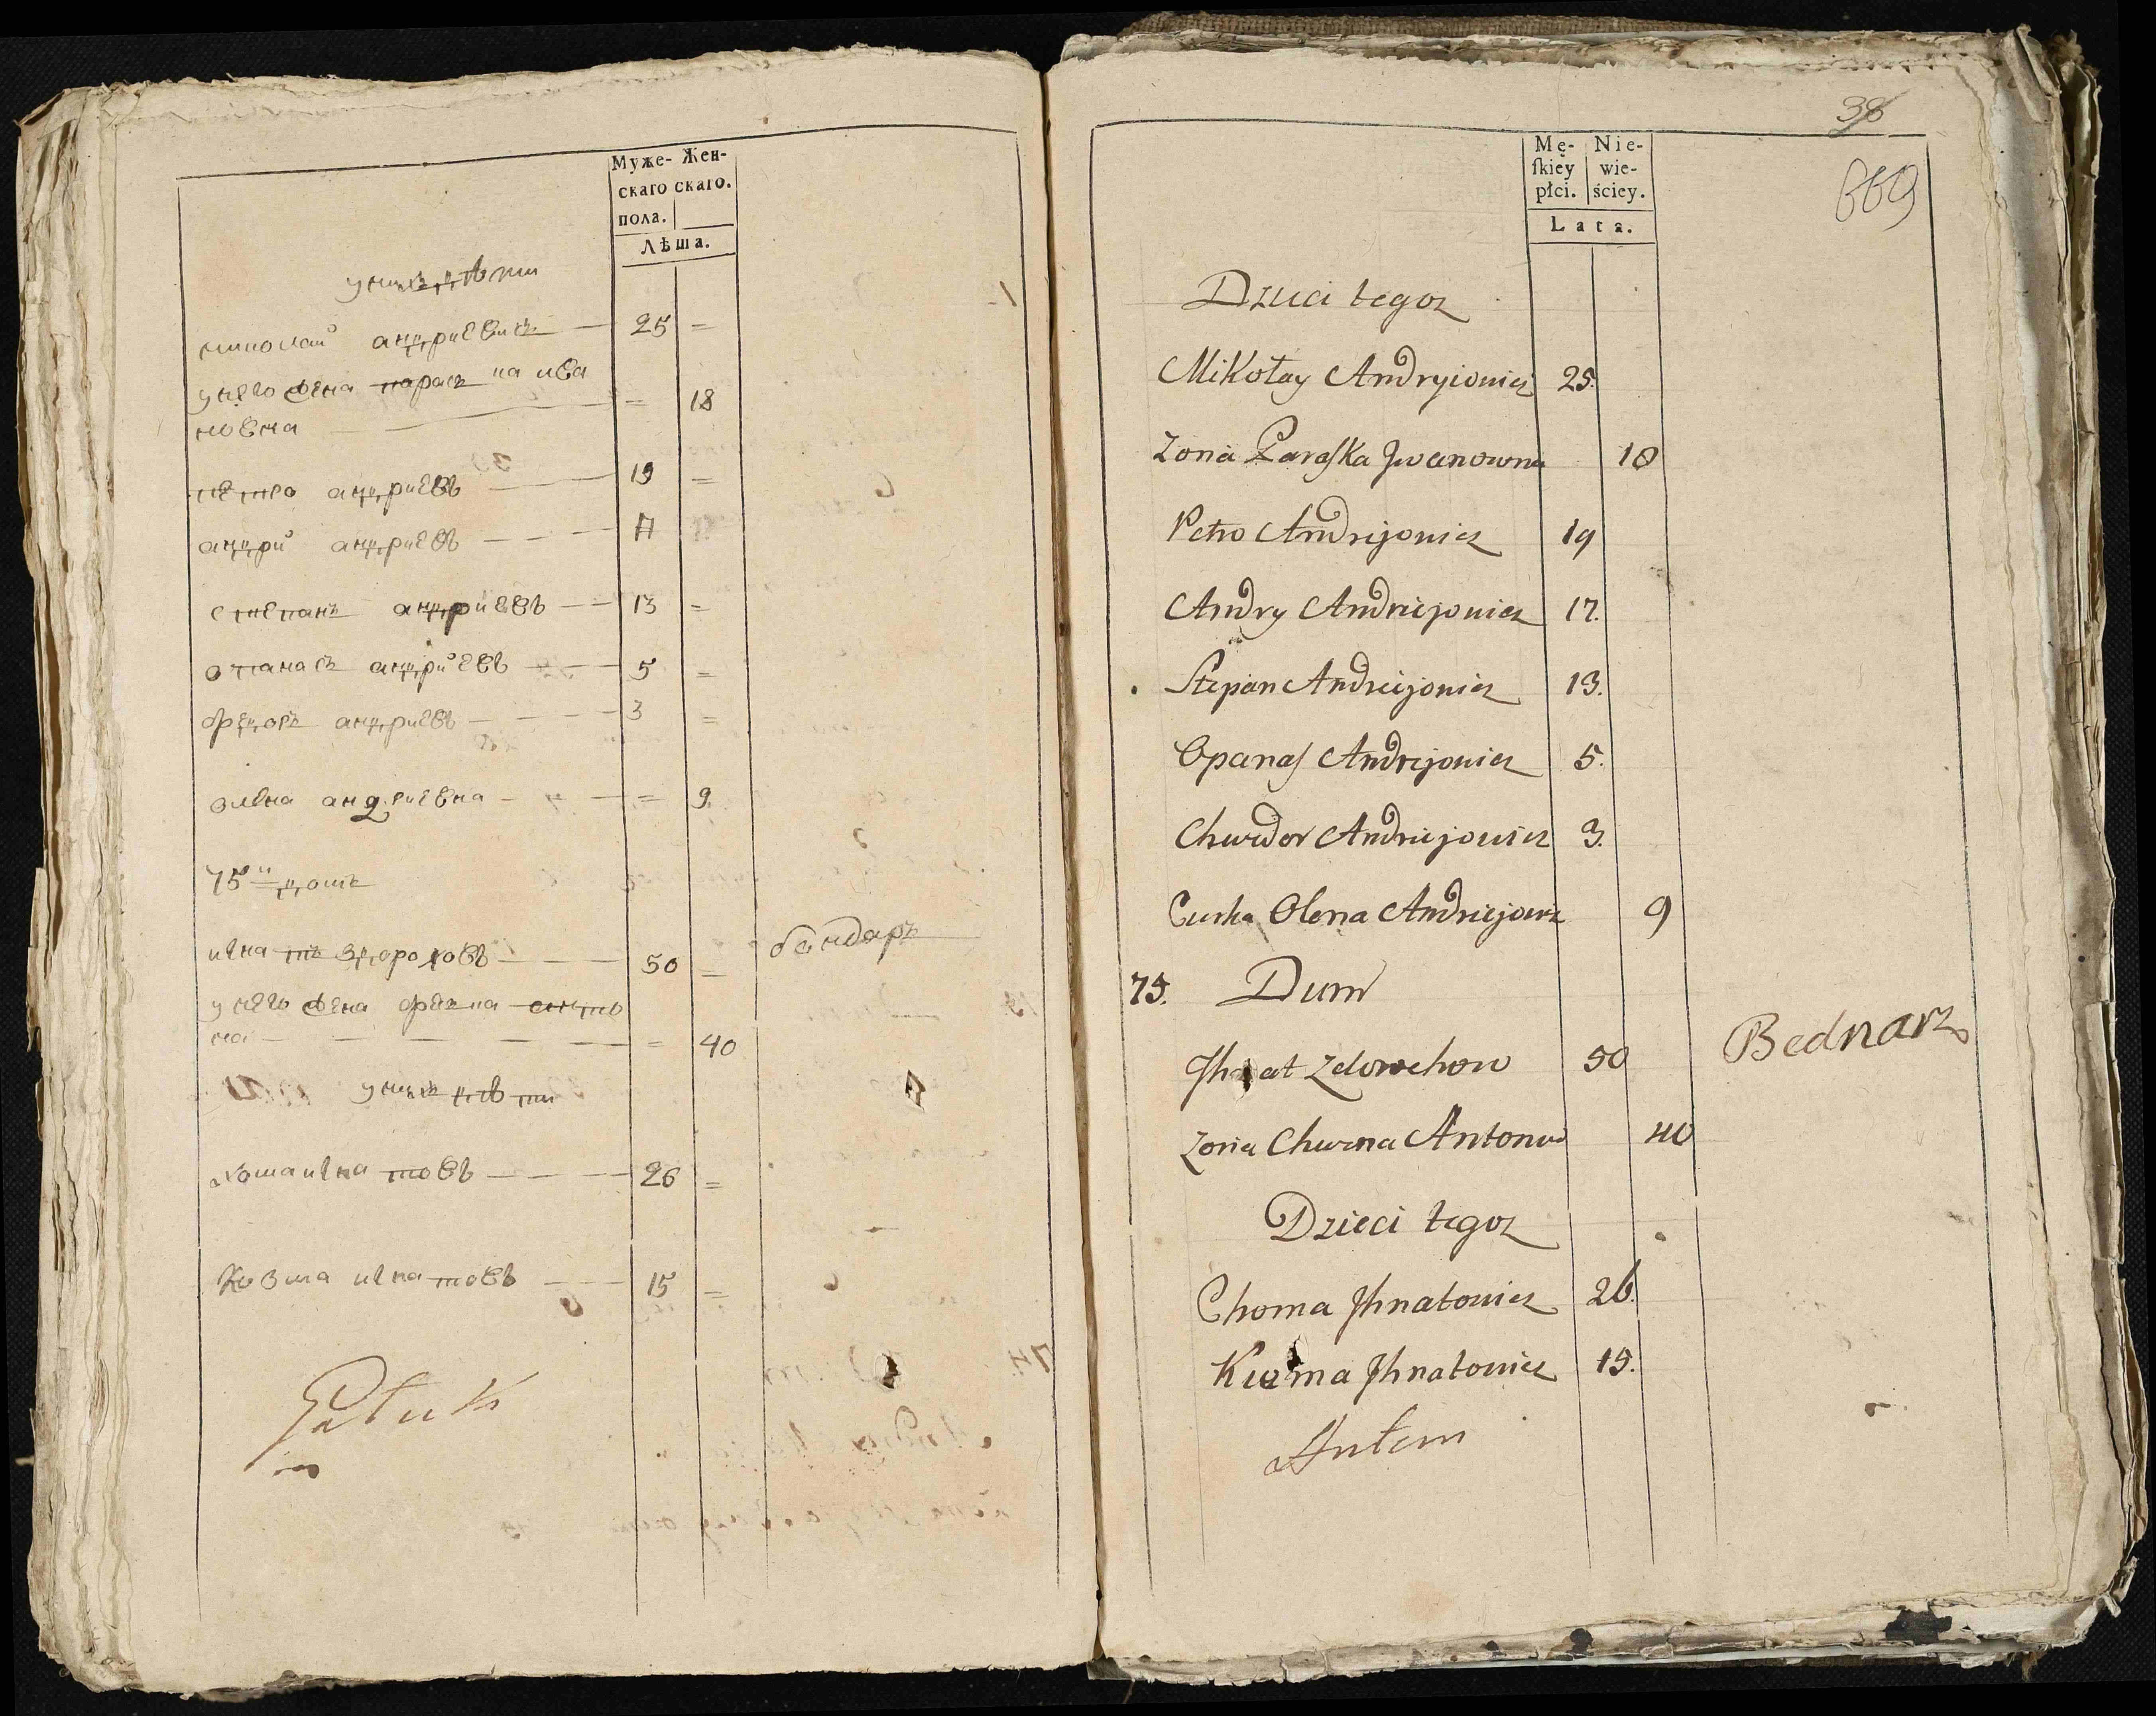 Муже- Жен-
скаго скаго.
пола.
Лѣта.
у нихъ дѣти
николай андриевичъ 25 =
у него жена параска ива
новна = 18
петро андриевъ 19 =
андрій андриевъ
степанъ андриевъ 13 =
опанасъ андриевъ 5 =
андриевъ 3 =
олена андриевна = 9
75й домъ
игнатъ здороховъ 50 = бондаръ
у него жена
на = 40
у нихъ дѣти
хома игнатовъ 26 =
козма игнатовъ 15 =
38
669
Mę- Nie-
ſkiey wie-
płci. ściey.
Lata.
Dzieci tegoż
Mikołay Andryiowicz 25.
Zona Paraſka Jwanowna 18
Petro Andrijowicz 19
Andry Andriejowicz 17.
Stepan Andreijowicz 13.
Opanaſ Andrejowicz 5.
Chwedor Andriejowicz 3.
Curka Olena Andriejowa 9
75. Dum
Jhnat Zdorochow 50 Bednarz
Zona Chwenna Antonow 40
Dzieci tegoz
Choma Jhnatowicz 26.
Kuzma Jhnatowicz 15.